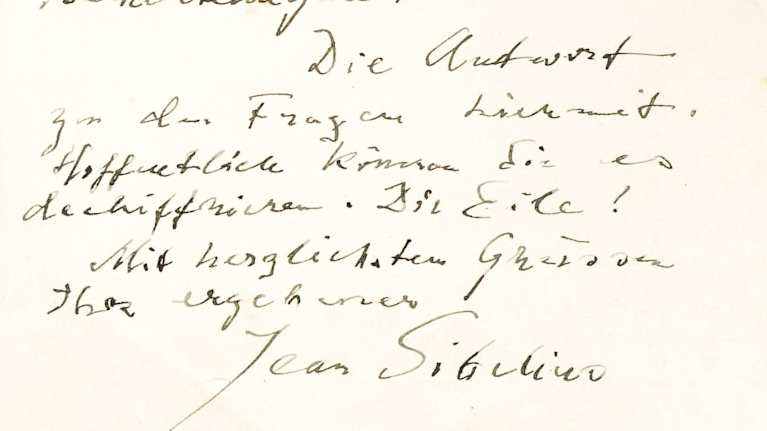 Die Antwort
zu den Fragen hiermit.
Hoffentlich können Sie es
dechiffrieren. Die Eile!
Mit herzlichsten Grüssen
Ihr ergebener
Jean Sibelius